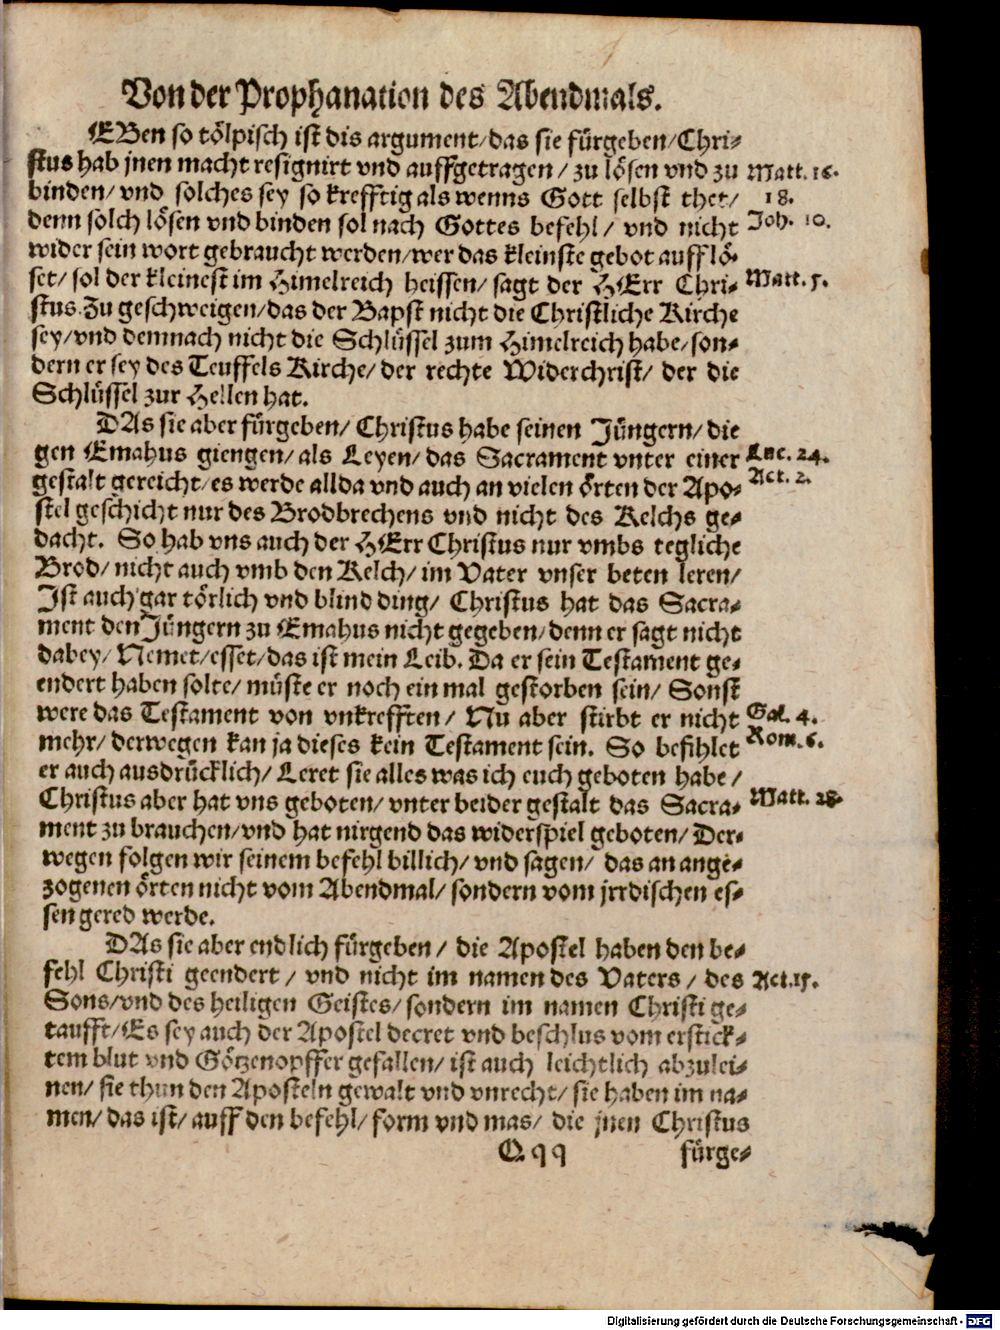 Von der Prophanation des Abendmals.
EBen so tölpisch ist dis argument/das sie fürgeben/Chri-
stus hab jnen macht resignirt vnd auffgetragen/ zu lösen vnd zu
Matt. 16.
binden/ vnd solches sey so krefftig als wenns Gott selbst thet/
18.
denn solch lösen vnd binden sol nach Gottes befehl/ vnd nicht
Joh. 10.
wider sein wort gebraucht werden/wer das kleinste gebot aufflö-
set/ sol der kleinest im Himelreich heissen/ sagt der HErr Chri-
Matt. 5.
stus. Zu geschweigen/das der Bapst nicht die Christliche Kirche
sey/vnd demnach nicht die Schlüssel zum Himelreich habe/son-
dern er sey des Teuffels Kirche/ der rechte Widerchrist/ der die
Schlüssel zur Hellen hat.
DAs sie aber fürgeben/ Christus habe seinen Jüngern/ die
gen Emahus giengen/ als Leyen/ das Sacrament vnter einer
Luc. 24.
gestalt gereicht/es werde allda vnd auch an vielen örten der Apo-
Act. 2.
stel geschicht nur des Brodbrechens vnd nicht des Kelchs ge-
dacht. So hab vns auch der HErr Christus nur vmbs tegliche
Brod/ nicht auch vmb den Kelch/ im Vater vnser beten leren/
Ist auch gar törlich vnd blind ding/ Christus hat das Sacra-
ment den Jüngern zu Emahus nicht gegeben/denn er sagt nicht
dabey/ Nemet/esset/das ist mein Leib. Da er sein Testament ge-
endert haben solte/ müste er noch ein mal gestorben sein/ Sonst
were das Testament von vnkrefften/ Nu aber stirbt er nicht
Gal. 4.
mehr/ derwegen kan ja dieses kein Testament sein. So befihlet
Rom. 6.
er auch ausdrücklich/ Leret sie alles was ich euch geboten habe/
Christus aber hat vns geboten/ vnter beider gestalt das Sacra-
Matt. 28.
ment zu brauchen/vnd hat nirgend das widerspiel geboten/ Der-
wegen folgen wir seinem befehl billich/ vnd sagen/ das an ange-
zogenen örten nicht vom Abendmal/ sondern vom jrrdischen es-
sen gered werde.
DAs sie aber endlich fürgeben/ die Apostel haben den be-
fehl Christi geendert/ vnd nicht im namen des Vaters/ des
Act. 15.
Sons/vnd des heiligen Geistes/ sondern im namen Christi ge-
taufft/Es sey auch der Apostel decret vnd beschlus vom erstick-
tem blut vnd Götzenopffer gefallen/ ist auch leichtlich abzulei-
nen/ sie thun den Aposteln gewalt vnd vnrecht/ sie haben im na-
men/ das ist/ auff den befehl/ form vnd mas/ die jnen Christus
Qqq fürge-
Digitalisierung gefördert durch die Deutsche Forschungsgemeinschaft - DFG